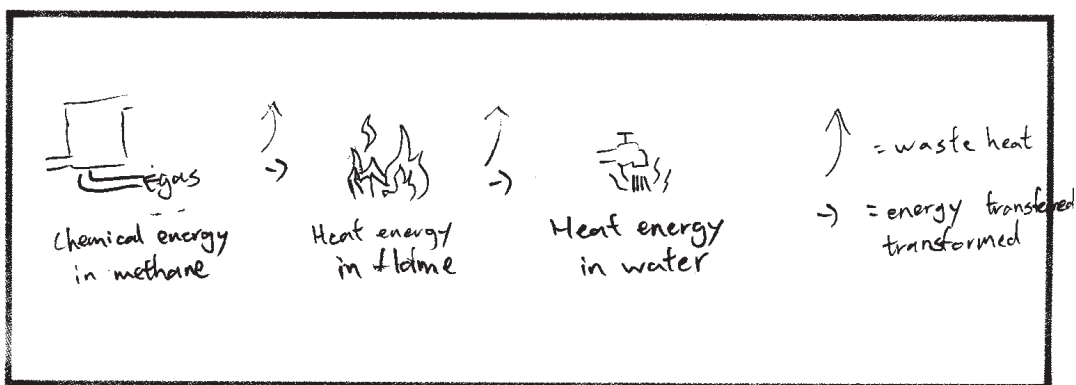 gas
Chemical energy
in methane
→
Heat energy
in flame
→
Heat energy
in water
= waste heat
→ = energy transferred
transformed